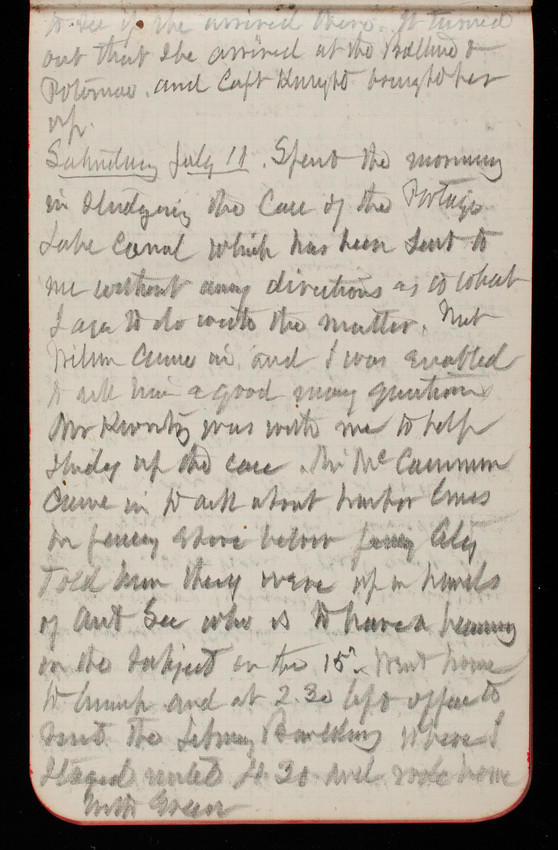 to see if she arrived there. It turned
out that she arrived at the Balt and
Potomac. and Capt Knight brought her
up.
Saturday July 11. Spent the morning
in studying the Case of the Portage
Lake Canal which has been sent to
me without any directions as to what
I am to do with the matter.
Wilson came in and I was enabled
to ask him a good many questions
Mr was with me to help
study up the case. Mr McCammon
came in to ask about harbor lines
on Jersey Shore below Jersey City
Told him they were up in hands
of Act Sec who is to have a hearing
on the subject on the 15th. Went home
to lunch and at 2.30 left office to
visit the Library Building where I
staid until 4.30 and rode home
with Green